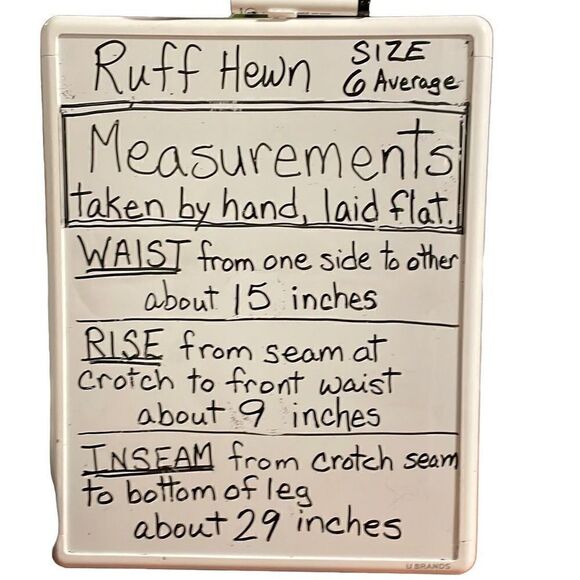 Ruff Hewn SIZE
6 Average
Measurements
taken by hand, laid flat.
WAIST from one side to other
about 15 inches
RISE from seam at
crotch to front waist
about 9 inches
INSEAM from crotch seam
to bottom of leg
about 29 inches
U BRANDS